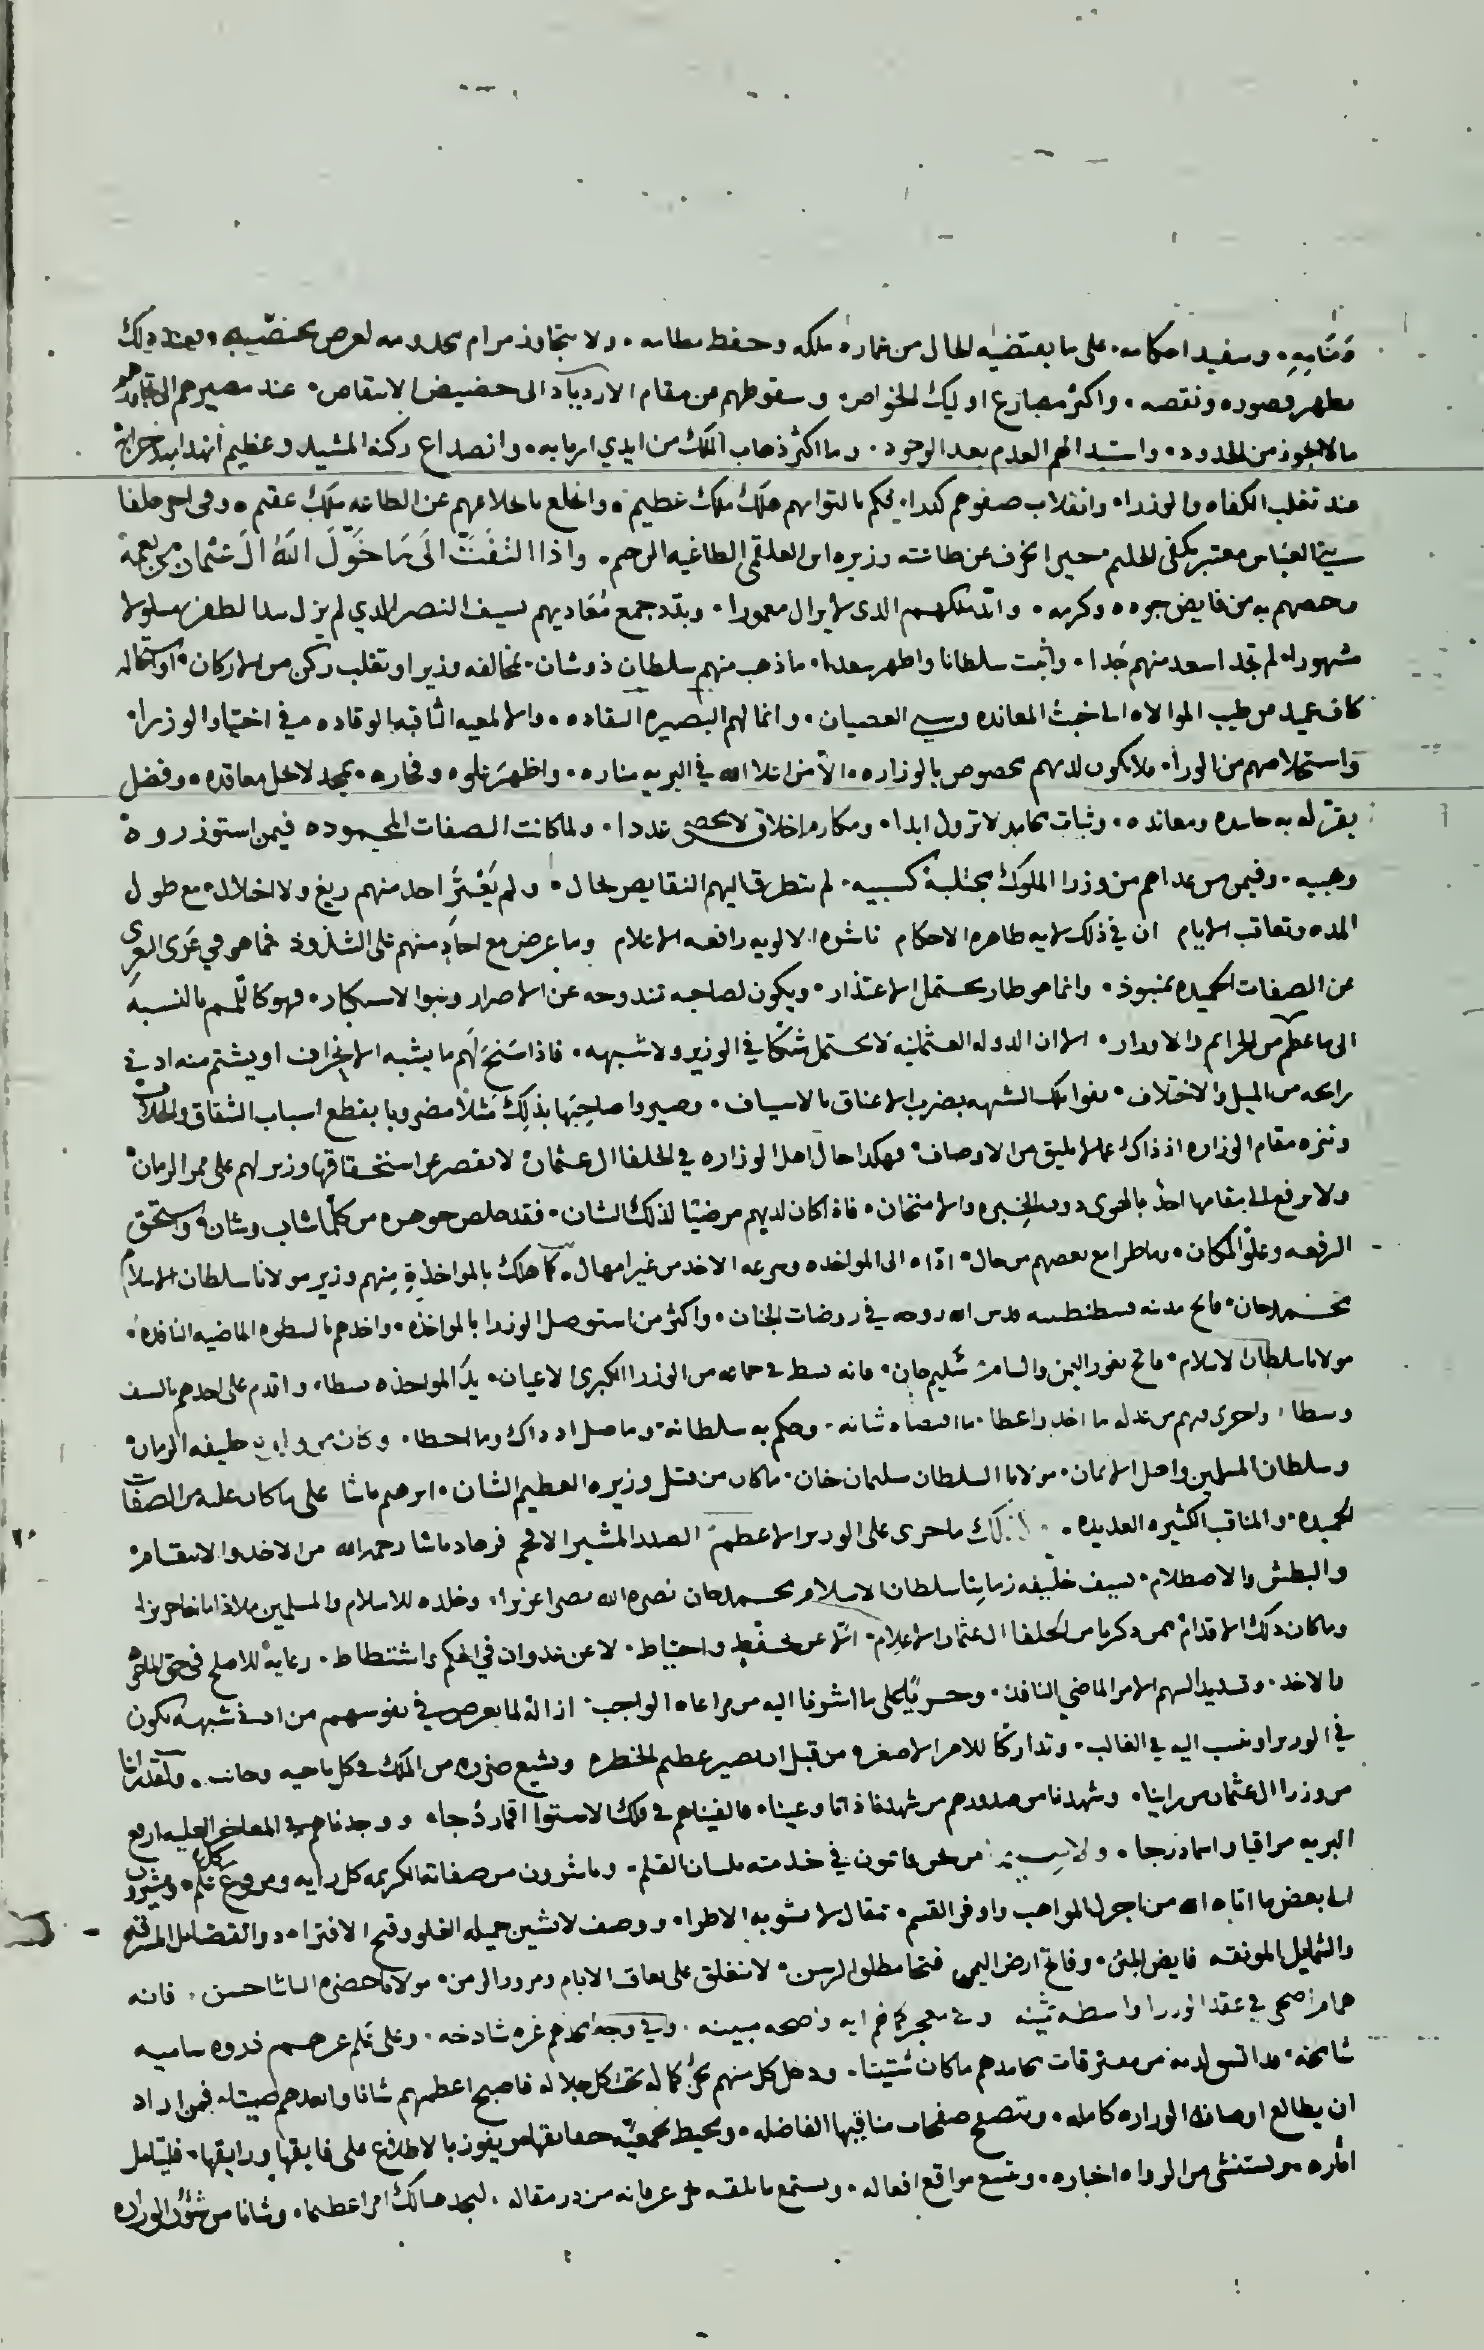 ومنابه، وسفيد احكامه، على ما يقتضيه الحال من عماره ملكه وحفظ نظامه، ولا يتجاوز مرام مخدومه لعرض وبعد ذلك
يظهر قصوره ونقصه، واكثر مصارع اوليك الخواص، وسقوطهم من مقام الازدياد الى حضيض الانتقاص، عند مصيرهم الى
ما لا يجوز من الحدود، واستبدالهم العدم بعد الوجود، وما اكثر ذهاب الملك من ايدي اربابه، وانصداع ركنه المشيد وعظيم
عند تقلب الكفاه والوزرا، وانقلاب صفوهم كدرا، فكم بالتوائهم هلك ملك عظيم، وانخلع باخلاعهم عن الطاعه ملك عقيم، وفى اخر خلفا
بني العباس معتبر يكفى الحليم انحرف عن طاعته وزيره ابن العلقمي الطاغيه الرجيم، واذا التفت الى ما خول الله ال عثمان من نعمه
وخصهم به من فايض جوده وكرمه، وان ملكهم الذى لا يزال معمورا، وبدد جمع معاديهم بسيف النصر الذي لم يزل بيد الظفر مسلولا
مشهورا، لم تجد اسعد منهم جدا، واثبت سلطانا واظهر سعدا، ما ذهب منهم سلطان ذو شان، بمخالفه وزير او تقلب ركن من الاركان، او استحاله
كاف عميد من طيب الموالاه الى خبث المعانده وسي العصيان، وانما لهم البصيره النقاده، والالمعيه الثاقبه الوقاده، في اختيار الوزرا
واستخلاصهم من الورا، فلا يكون لديهم مخصوص بالوزاره، الا من اعلا الله في البريه مناره، واظهر علوه وفخاره، بمجد لا تحل معاقده، وفضل
يقر له به حاسده ومعانده، وثبات محامد لا تزول ابدا، ومكارم اخلاق لا تحصى عددا، ولما كانت الصفات المحموده فيمن استوزروه
وهبيه، وفيمن عداهم من وزرا الملوك مجتلبة كسبيه، لم تتطرق اليهم النقايص بحال، ولم يعتر احد منهم زيغ ولا اختلال، مع طول
المده وتعاقب الايام ان في ذلك لايه ظاهره الاحكام ناشره الالويه رافعه الاعلام وما عرض مع احاد منهم على الشذوذ فما هو في عرى العرى
عن الصفات الحميده بمنبوذ، وانما هو طار يحتمل الاعتذار، ويكون لصاحبه مندوحه عن الاصرار ونبو الاستكبار، فهو كاللمم بالنسبه
الى ما عظم من الجرايم والاوزار، الا ان الدوله العثمانيه لا تحتمل شكا في الوزير ولا شبهه، فاذا سنح لهم ما يشبه الانحراف او يشتم منه ادنى
رايحه من الميل والاختلاف، نفوا تلك الشبهه بضرب الاعناق بالاسياف، وصيروا صاحبها بذلك مثلا مضروبا بقطع اسباب الشقاق والخلاف
وتنزه مقام الوزاره اذ ذاك عما لا يليق من الاوصاف، فهكذا حال اهل الوزاره في الخلفا ال عثمان لا يقصر عن استحقاقها وزير لهم على ممر الزمان
ولا يرفع الى مقامها احد بالهوى دون الخبره والامتحان، فاذا كان لديهم مرضيا لذلك الشان، فقد خلص جوهره من كلما شاب وشان، واستحق
الرفعه وعلو المكان، وما طرا مع بعضهم من حال، اداه الى المواخذه وسرعه الاخذ من غير امهال، كما هلك بالمواخذة منهم وزير مولانا سلطان الاسلام
محمد خان، فاتح مدينه قسطنطينيه قدس الله روحه في روضات الجنان، واكثر من استوصل الوزرا بالمواخذه، واخذهم بالسطوه الماضيه النافذه
مولانا سلطان الاسلام، فاتح ثغور اليمن والشام، سليم خان، فانه بسط في جماعه من الوزرا الكبرى الاعيان، يد المواخذه بسطا، واقدم على احدهم بالسيف
وسطا، واجرى فيهم من عدله ما اخذ واعطا، ما اقتضاه شانه، وحكم به سلطانه، وما ضل اذ ذاك وما اخطا، وكان من خليفه الزمان
وسلطان المسلمين واهل الايمان، مولانا السلطان سليمان خان، ما كان من قتل وزيره العظيم الشان، ابرهيم باشا على ما كان عليه من الصفات
الحميده، والمناقب الكثيره العديده، كذلك ما جرى على الوزير الاعظم، الصدر المشير الافخم فرهاد باشا رحمه الله من الاخذ والانتقام
والبطش والاصطلام، بسيف خليفه زماننا سلطان الاسلام محمد خان نصره الله نصرا عزيزا، وخلده للاسلام والمسلمين ملاذا
وما كان ذلك الاقدام ممن ذكرنا من الخلفا ال عثمان الاعلام، الا عن تحفظ واحتياط، لا عن عدوان في الحكم واشتطاط، رعاية للاصلح في حق
بالاخذ، وتسديد السهم الامر الماضي النافذ، وجريا على ما اشرفا اليه من مراعاه الواجب، ازالة لما يعرض في نفوسهم من ادنى شبهه تكون
في الوزير او نسب اليه في الغالب، وتداركا للامر الاصغر من قبل ان يصير عظيم الخطر وتشيع ضرره من الملك في كل ناحيه وجانب
من وزرا ال عثمان من راينا، وشهدنا من صدورهم من شهدنا ذاتا وعينا، فالفيناهم في فلك الاستوا اقمار دجا، ووجدناهم في المفاخر العليه ارفع
البريه مراقيا واسما درجا، ولا سيما من نحن قايمون في خدمته بلسان القلم، وناشرون من صفاته الكريمه كل رايه وعلم، ومشيرون
الى بعض ما اتاه الله من اجزل المواهب واوفر القسم، بمقال لا يشوبه الاطرا، ووصف لا تشين جميله الغلو وقبح الافترا، ذو الفضايل المشرقه
والشمايل المونقه فايض المنن، وفاتح ارض اليمن فتحا مطلق الرسن، لا ينغلق على تعاقب الايام ومرور الزمن، مولانا حضره الباشا حسن، فانه
همام اضحى في عقد الوزرا واسطه ثمينه وفي معجزاتهم ايه واضحه مبينه، وفي وجه مجدهم غره شادخه، وعلى علم عزهم ذروه ساميه
شامخه، قد اتسق لديه من مفترقات محامدهم ما كان شتيتا، ودخل كل منهم بحر كماله تحت ظل جلاله فاصبح اعظمهم شانا وابعدهم صيتا، فمن اراد
ان يطالع اوصاف الوزاره كامله، ويتصفح صفحات مناقبها الفاضله، ويحيط بجمعية حقايقها، ويفوز بالاطلاع على فايقها ورايقها، فليتامل
اثاره، ويستنشى من الرواه اخباره، ويتتبع مواقع افعاله، ويستمع ما يلقيه بحر عرفانه من در مقاله، ليجد هنالك امرا عظيما، وشانا من شؤن الوزاره